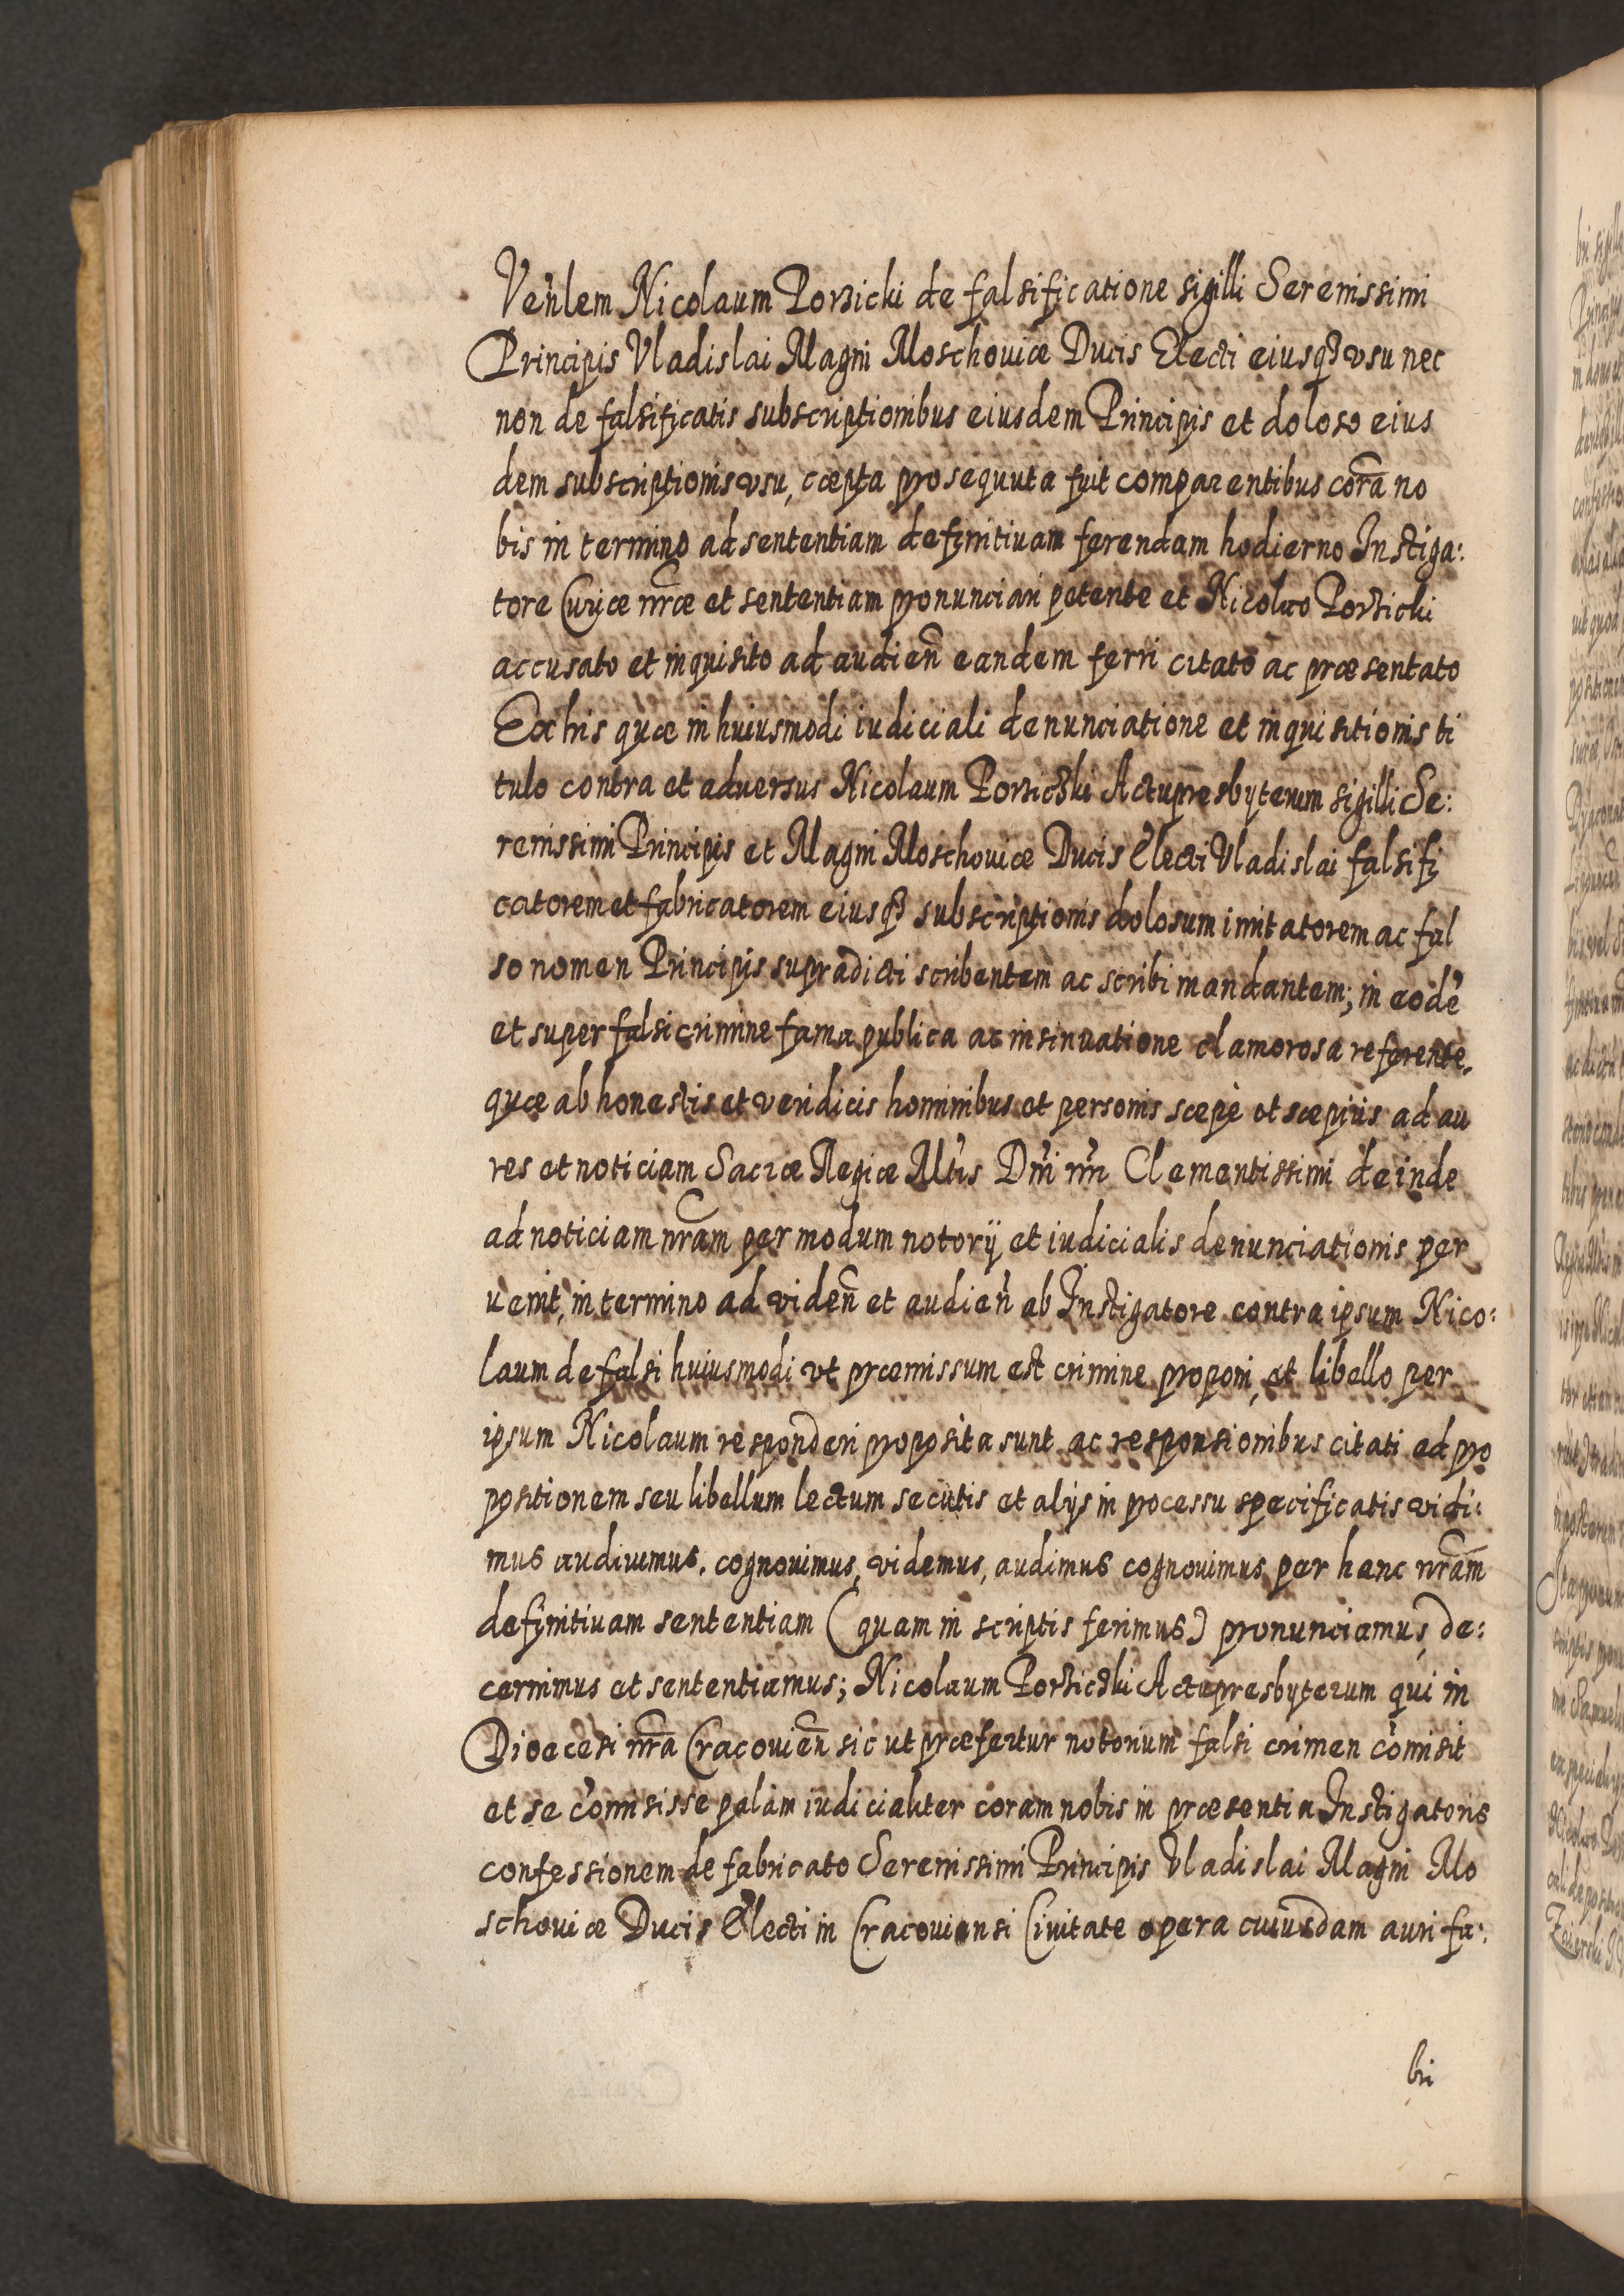 Ven̄lem Nicolaum Porzicki de falsificatione sigilli Serenissimi
Principis Vladislai Magni Moschouiæ Ducis Electi eiusq́₃ vsu nec
non de falsificatis subscriptionibus eiusdem Principis et doloso eius
dem subscriptionis vsu, cœpta prosequuta fuit comparentibus corā no
bis in termino ad sententiam definitiuam ferendam hodierno Instiga:
tore Curiæ nr̄æ et sententiam pronunciari petente et Nicolao Porzicki
accusato et inquisito ad audien̄ eandem ferri citato ac præsentato
Ex his quæ in huiusmodi iudiciali denunciatione et inquisitionis ti
tulo contra et aduersus Nicolaum Porzicki Actupresbyterum sigilli Se:
renissimi Principis et Magni Moschouiæ Ducis Electi Vladislai falsifi
catorem et fabricatorem eiusq́₃ subscriptionis dolosum imitatorem ac fal
so nomen Principis supradicti scribentem ac scribi mandantem; in eodē
et super falsi crimine fama publica ac insinuatione clamorosa referente,
quæ ab honestis et veridicis hominibus et personis sæpè et sæpiùs ad au
res et noticiam Sacræ Regiæ Mt̄is Dn̄i nr̄i Clementissimi deinde
ad noticiam nr̄am per modum notorij et iudicialis denunciationis per
uenit, in termino ad viden̄ et audien̄ ab Instigatore contra ipsum Nico:
laum de falsi huiusmodi vt præmissum est crimine proponi, et libello per
ipsum Nicolaum responderi proposita sunt ac responsionibus citati ad pro
positionem seu libellum lectum secutis et alijs in processu specificatis vidi:
mus audiuimus, cognouimus, videmus, audimus cognouimus per hanc nr̄am
definitiuam sententiam (quam in scriptis ferimus) pronunciamus, de:
cernimus et sententiamus; Nicolaum Porzicki Actupresbyterum qui in
Dioecesi nr̄a Cracouien̄ sic ut præfertur notorium falsi crimen cōmisit
et se cōmisisse palam iudicialiter coram nobis in præsentia Instigatoris
confessionem de fabricato Serenissimi Principis Vladislai Magni Mo
schouiæ Ducis Electi in Cracouiensi Ciuitate opera cuiusdam auri fa:
bri